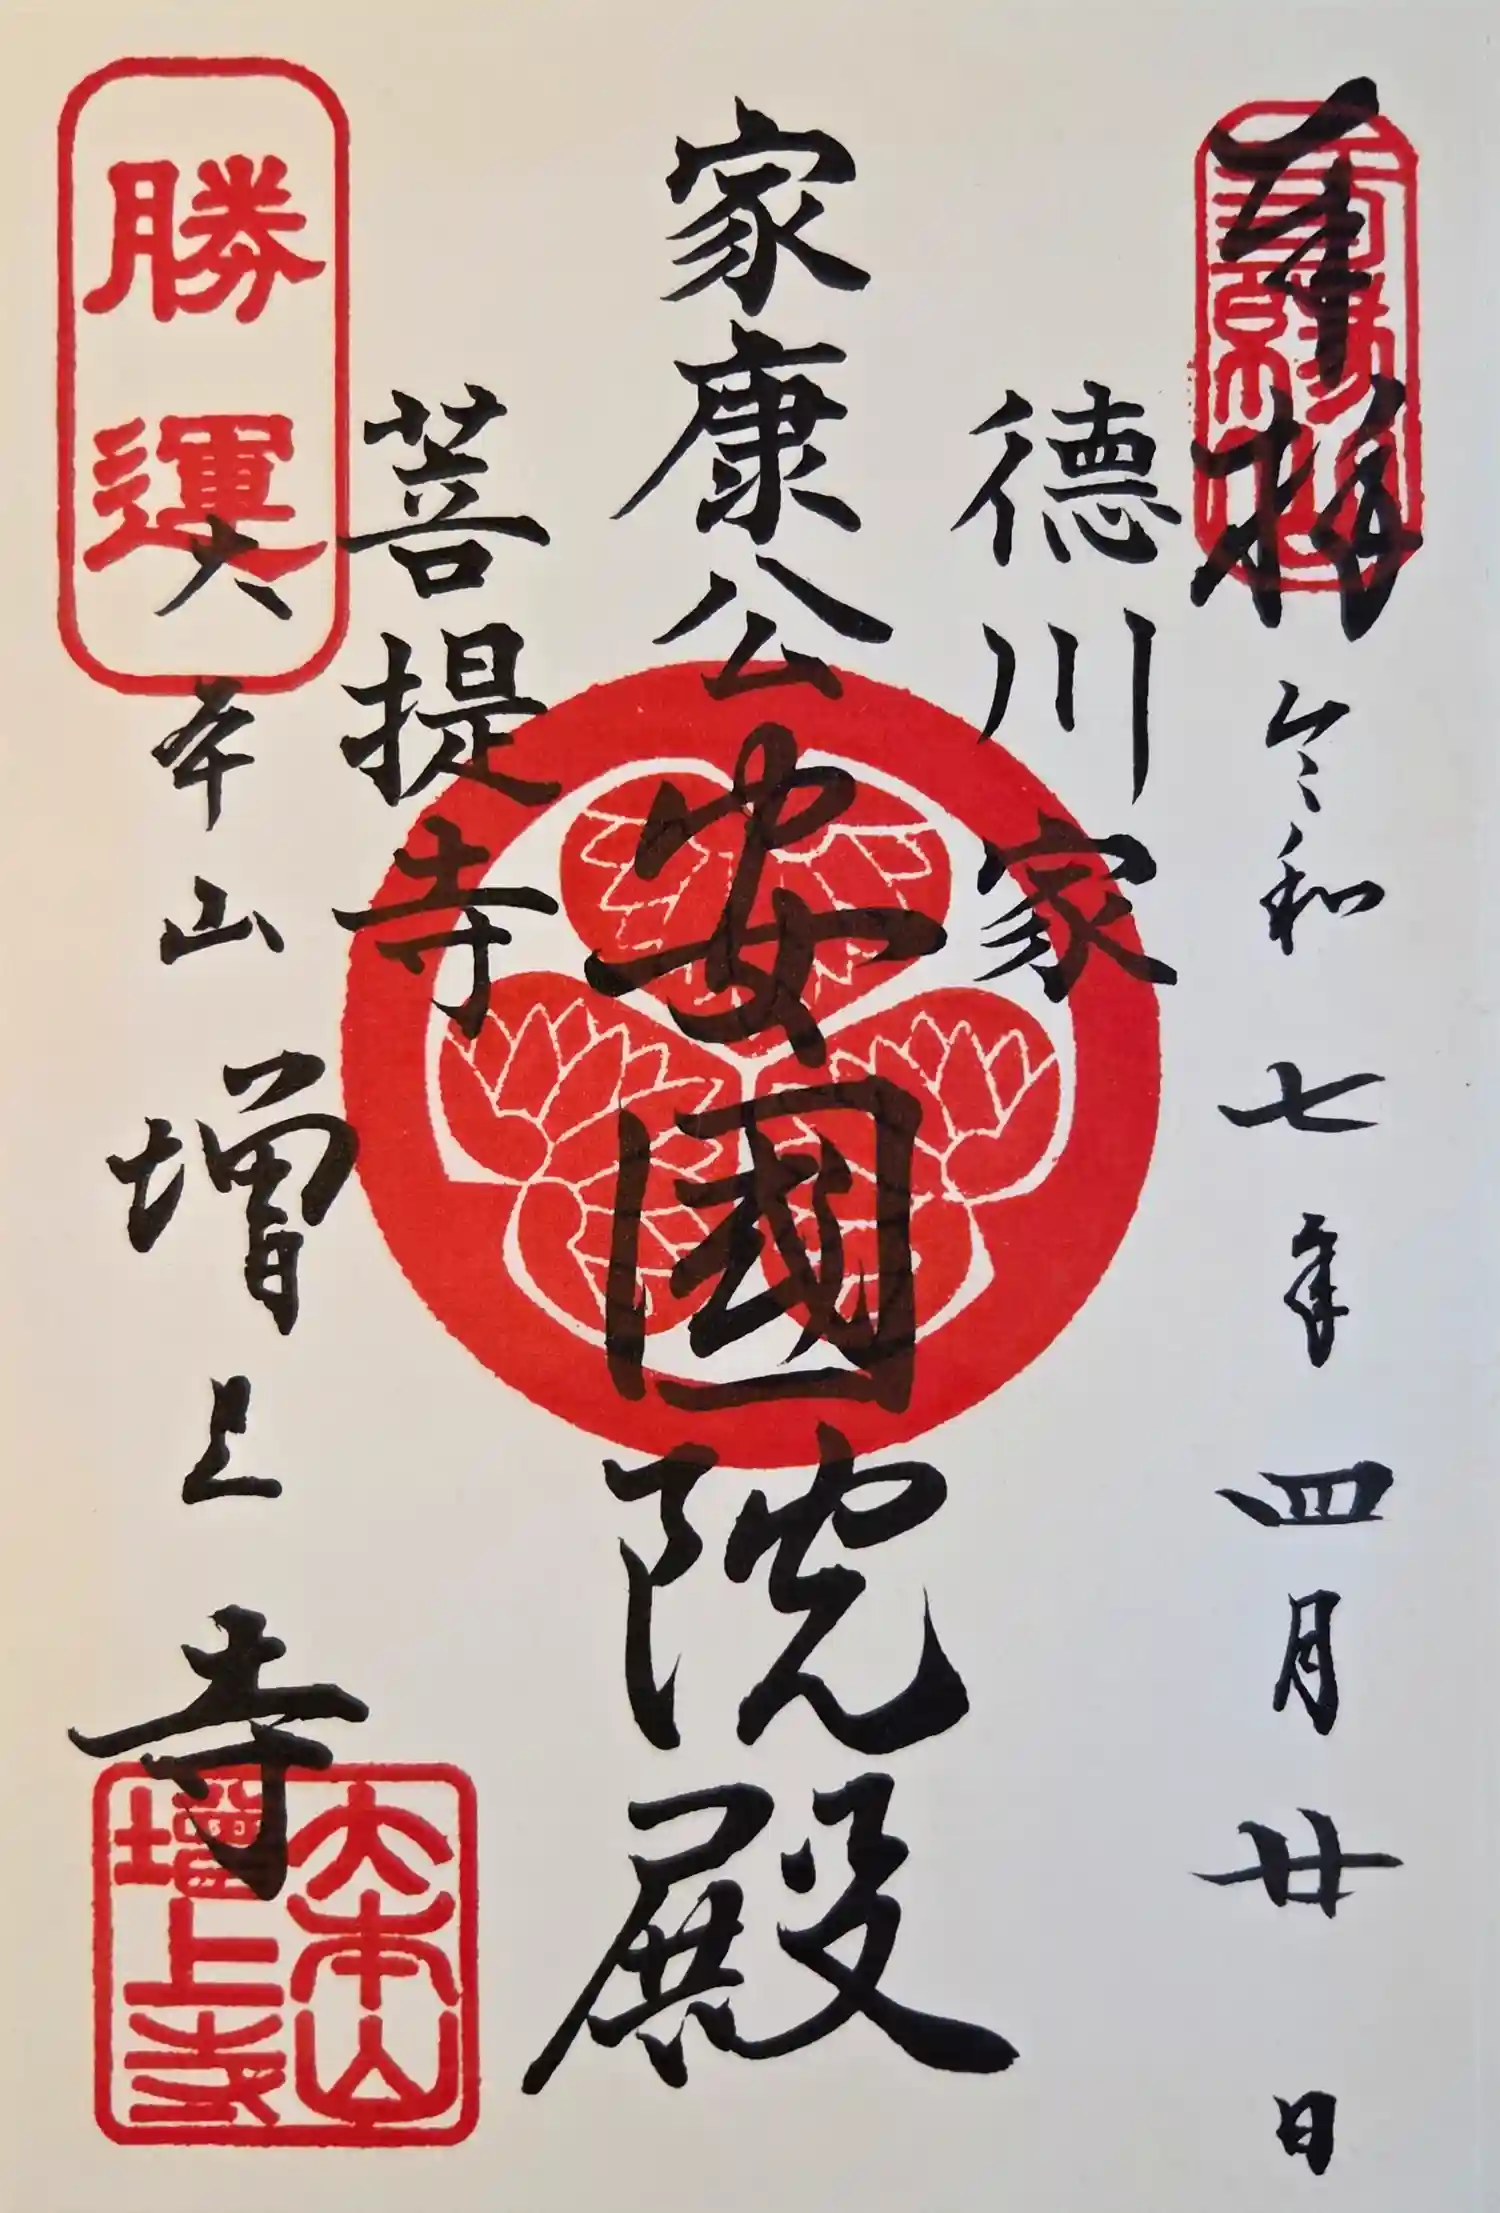 奉拝 令和七年四月廿日
徳川家
家康公安國院殿
菩提寺
勝運
大本山増上寺
大本山
増上寺